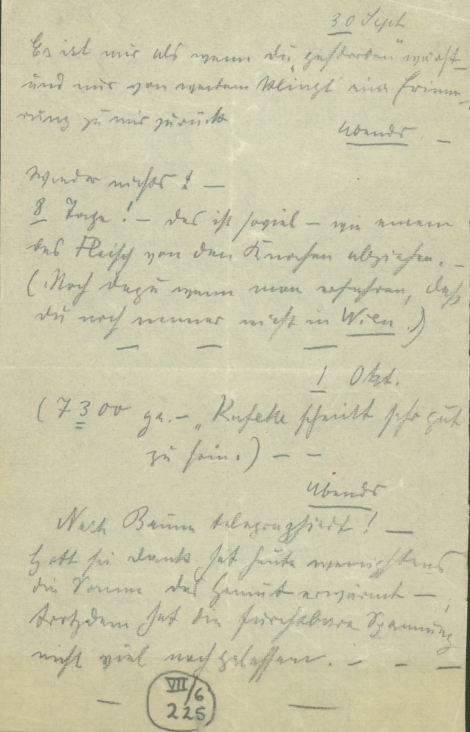 30 Sept
Es ist mir als wenn du „gestorben" wärst
und nur von weitem klingt eine Erinne-
rung zu mir zurück
Abends. –
Wieder nichts! –
8 Tage! – das ist soviel – wie einem
das Fleisch von den Knochen abziehen. –
(Noch dazu wenn man erfahren, daß
du noch immer nicht in Wien.)
– – –
1 Okt.
(7300 gr. – „Kufeke scheint sehr gut
zu sein.) – –
Abends
Nach telegraphiert! –
Gott sei dank hat heute wenigstens
die Sonne das Gemüt erwärmt – ,
trotzdem hat die furchtbare Spannung
nicht viel nachgelassen. – – –
– VII/6 –
225